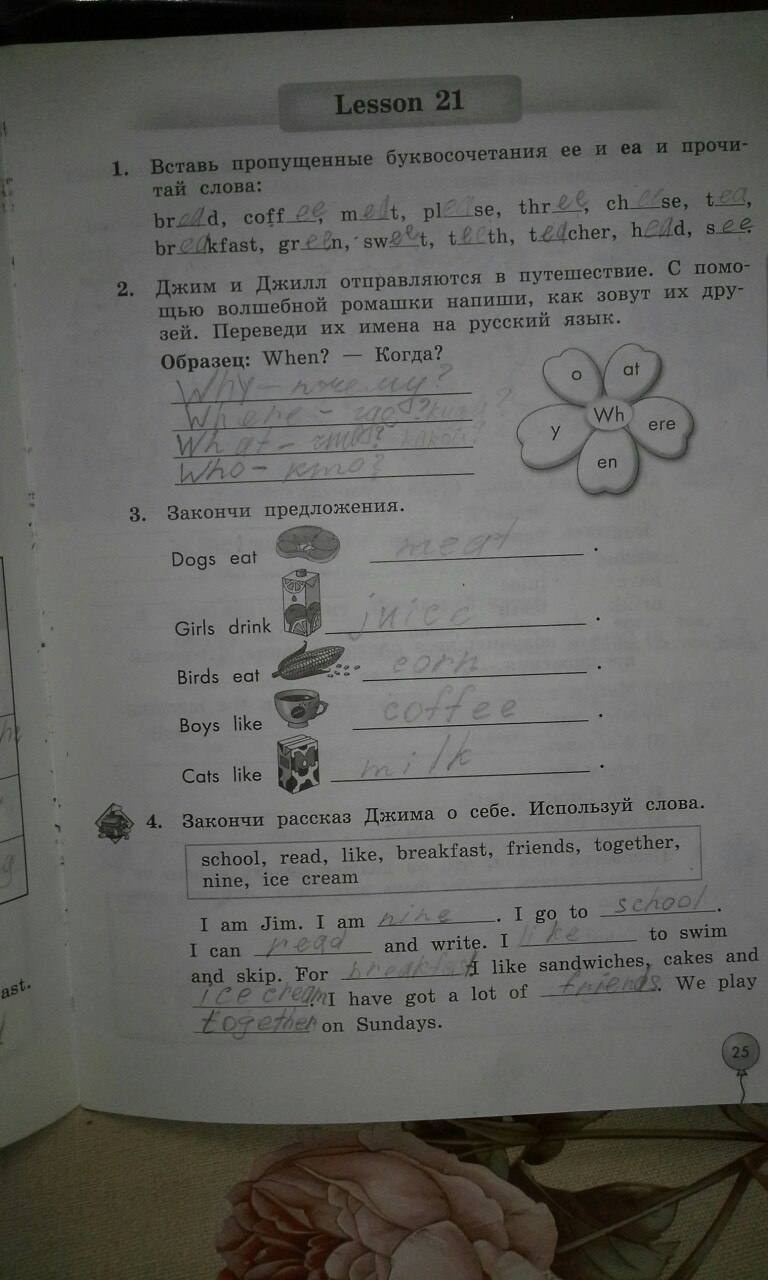 Lesson 21
1. Вставь пропущенные буквосочетания ee и ea и прочи-
тай слова:
bread, coffee, meat, please, three, cheese, tea,
breakfast, green, sweet, teeth, teacher, head, see.
2. Джим и Джилл отправляются в путешествие. С помо-
щью волшебной ромашки напиши, как зовут их дру-
зей. Переведи их имена на русский язык.
Образец: When? — Когда?
Why – почему?
Where – где? куда?
What – что? какой?
Who – кто?
o at
Wh
y ere
en
3. Закончи предложения.
Dogs eat meat.
Girls drink juice.
Birds eat corn.
Boys like coffee.
Cats like milk.
4. Закончи рассказ Джима о себе. Используй слова.
school, read, like, breakfast, friends, together,
nine, ice cream
I am Jim. I am nine. I go to school.
I can read and write. I like to swim
and skip. For breakfast I like sandwiches, cakes and
ice cream. I have got a lot of friends. We play
together on Sundays.
25
ast.